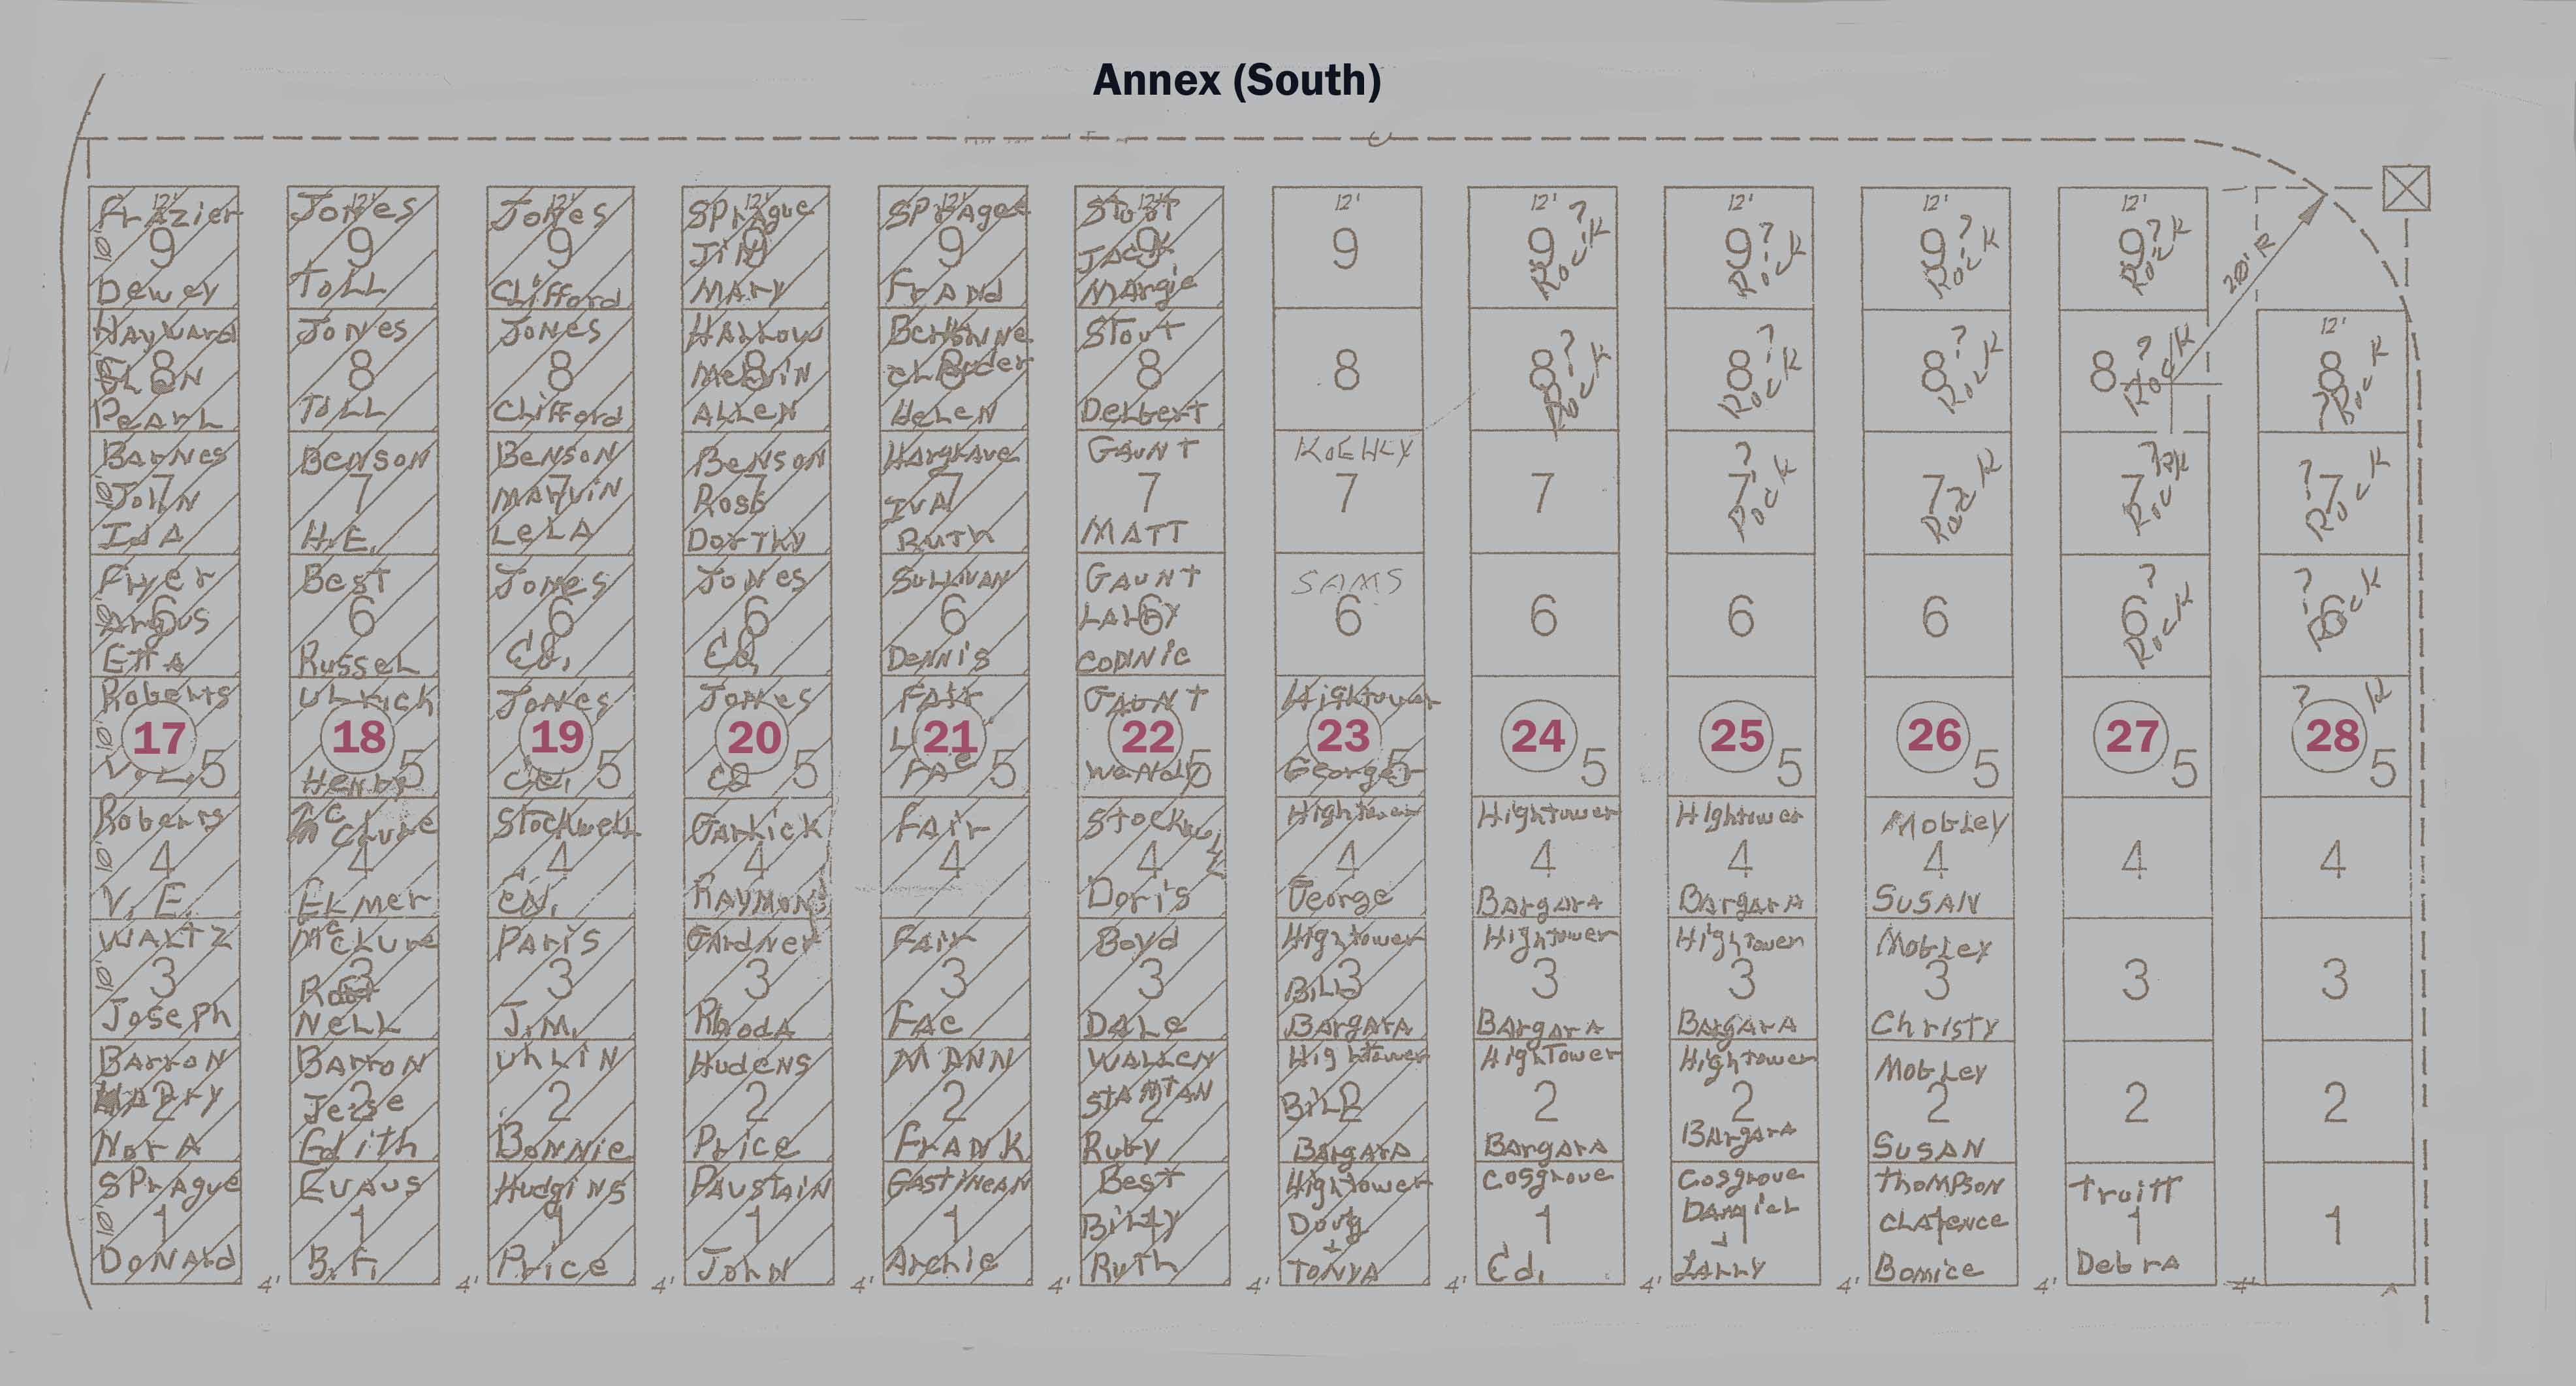 Annex (South)
12'
Frazier
9
10'
Dewey
Hayward
8
Pearl
Barnes
10'
7
John
Ida
Fryer
6
Argus
Etta
Roberts
10'
17
5
Roberts
10'
4
V. E.
Waltz
10'
3
Joseph
Barron
Harry
2
Nora
Sprague
10'
1
Donald
4'
12'
Jones
9
Toll
Jones
8
Toll
Benson
7
H.E.
Best
6
Russel
Ulrick
18
5
Henry
McClure
4
Elmer
McClure
3
Robt
Nell
Barron
2
Jesse
Edith
Evaus
1
B.F.
4'
12'
Jones
9
Clifford
Jones
8
Clifford
Benson
7
Marvin
Lela
Jones
6
Ed.
Jones
19
5
Ed.
Stockwell
4
Ed.
Paris
3
J.M.
Uhlin
2
Bonnie
Hudgins
1
Price
4'
12'
Sprague
9
Jim
Mary
Harrow
8
Melvin
Allen
Benson
7
Ross
Dorthy
Jones
6
Ed.
Jones
20
5
Ed
Garlick
4
Raymond
Gardner
3
Rhoda
Hudens
2
Price
Paustain
1
John
4'
12'
Sprague
9
8
Helen
Hargrave
7
Iva
Ruth
Sullivan
6
Dennis
Fair
21
5
Fae
Fair
4
Fair
3
Fae
Mann
2
Frank
Gastinean
1
Archie
4'
12'
Stout
9
Jack
Margie
Stout
8
Delbert
Gaunt
7
Matt
Gaunt
6
Larry
Connie
Gaunt
22
5
Wendy
4
Doris
Boyd
3
Dale
Wallen
2
Ruby
Best
1
Billy
Ruth
4'
12'
9
8
Koehly
7
Sams
6
Hightower
23
5
George
Hightower
4
George
Hightower
3
Bill
Bargara
Hightower
2
Bill
Bargara
Hightower
Doug
+
Tonya
4'
12'
9 ?
Rock
8 ?
Rock
7
6
24
5
Hightower
4
Bargara
Hightower
3
Bargara
Hightower
2
Bargara
Cosgrove
1
Ed.
4'
12'
9 ?
Rock
8 ?
Rock
7 ?
Rock
6
25
5
Hightower
4
Bargara
Hightower
3
Bargara
Hightower
2
Bargara
Cosgrove
Daniel
1
+
Larry
4'
12'
9 ?
Rock
8 ?
Rock
7
Rock
6
26
5
Mobley
4
Susan
Mobley
3
Christy
Mobley
2
Susan
Thompson
Clarence
1
Bomice
4'
12'
9 ?
Rock
8 ?
Rock
7 ?
Rock
6 ?
Rock
27
5
4
3
2
Truitt
1
Debra
4'
20' R
12'
8
? Rock
7 ?
Rock
6 ?
Rock
?
28
5
4
3
2
1